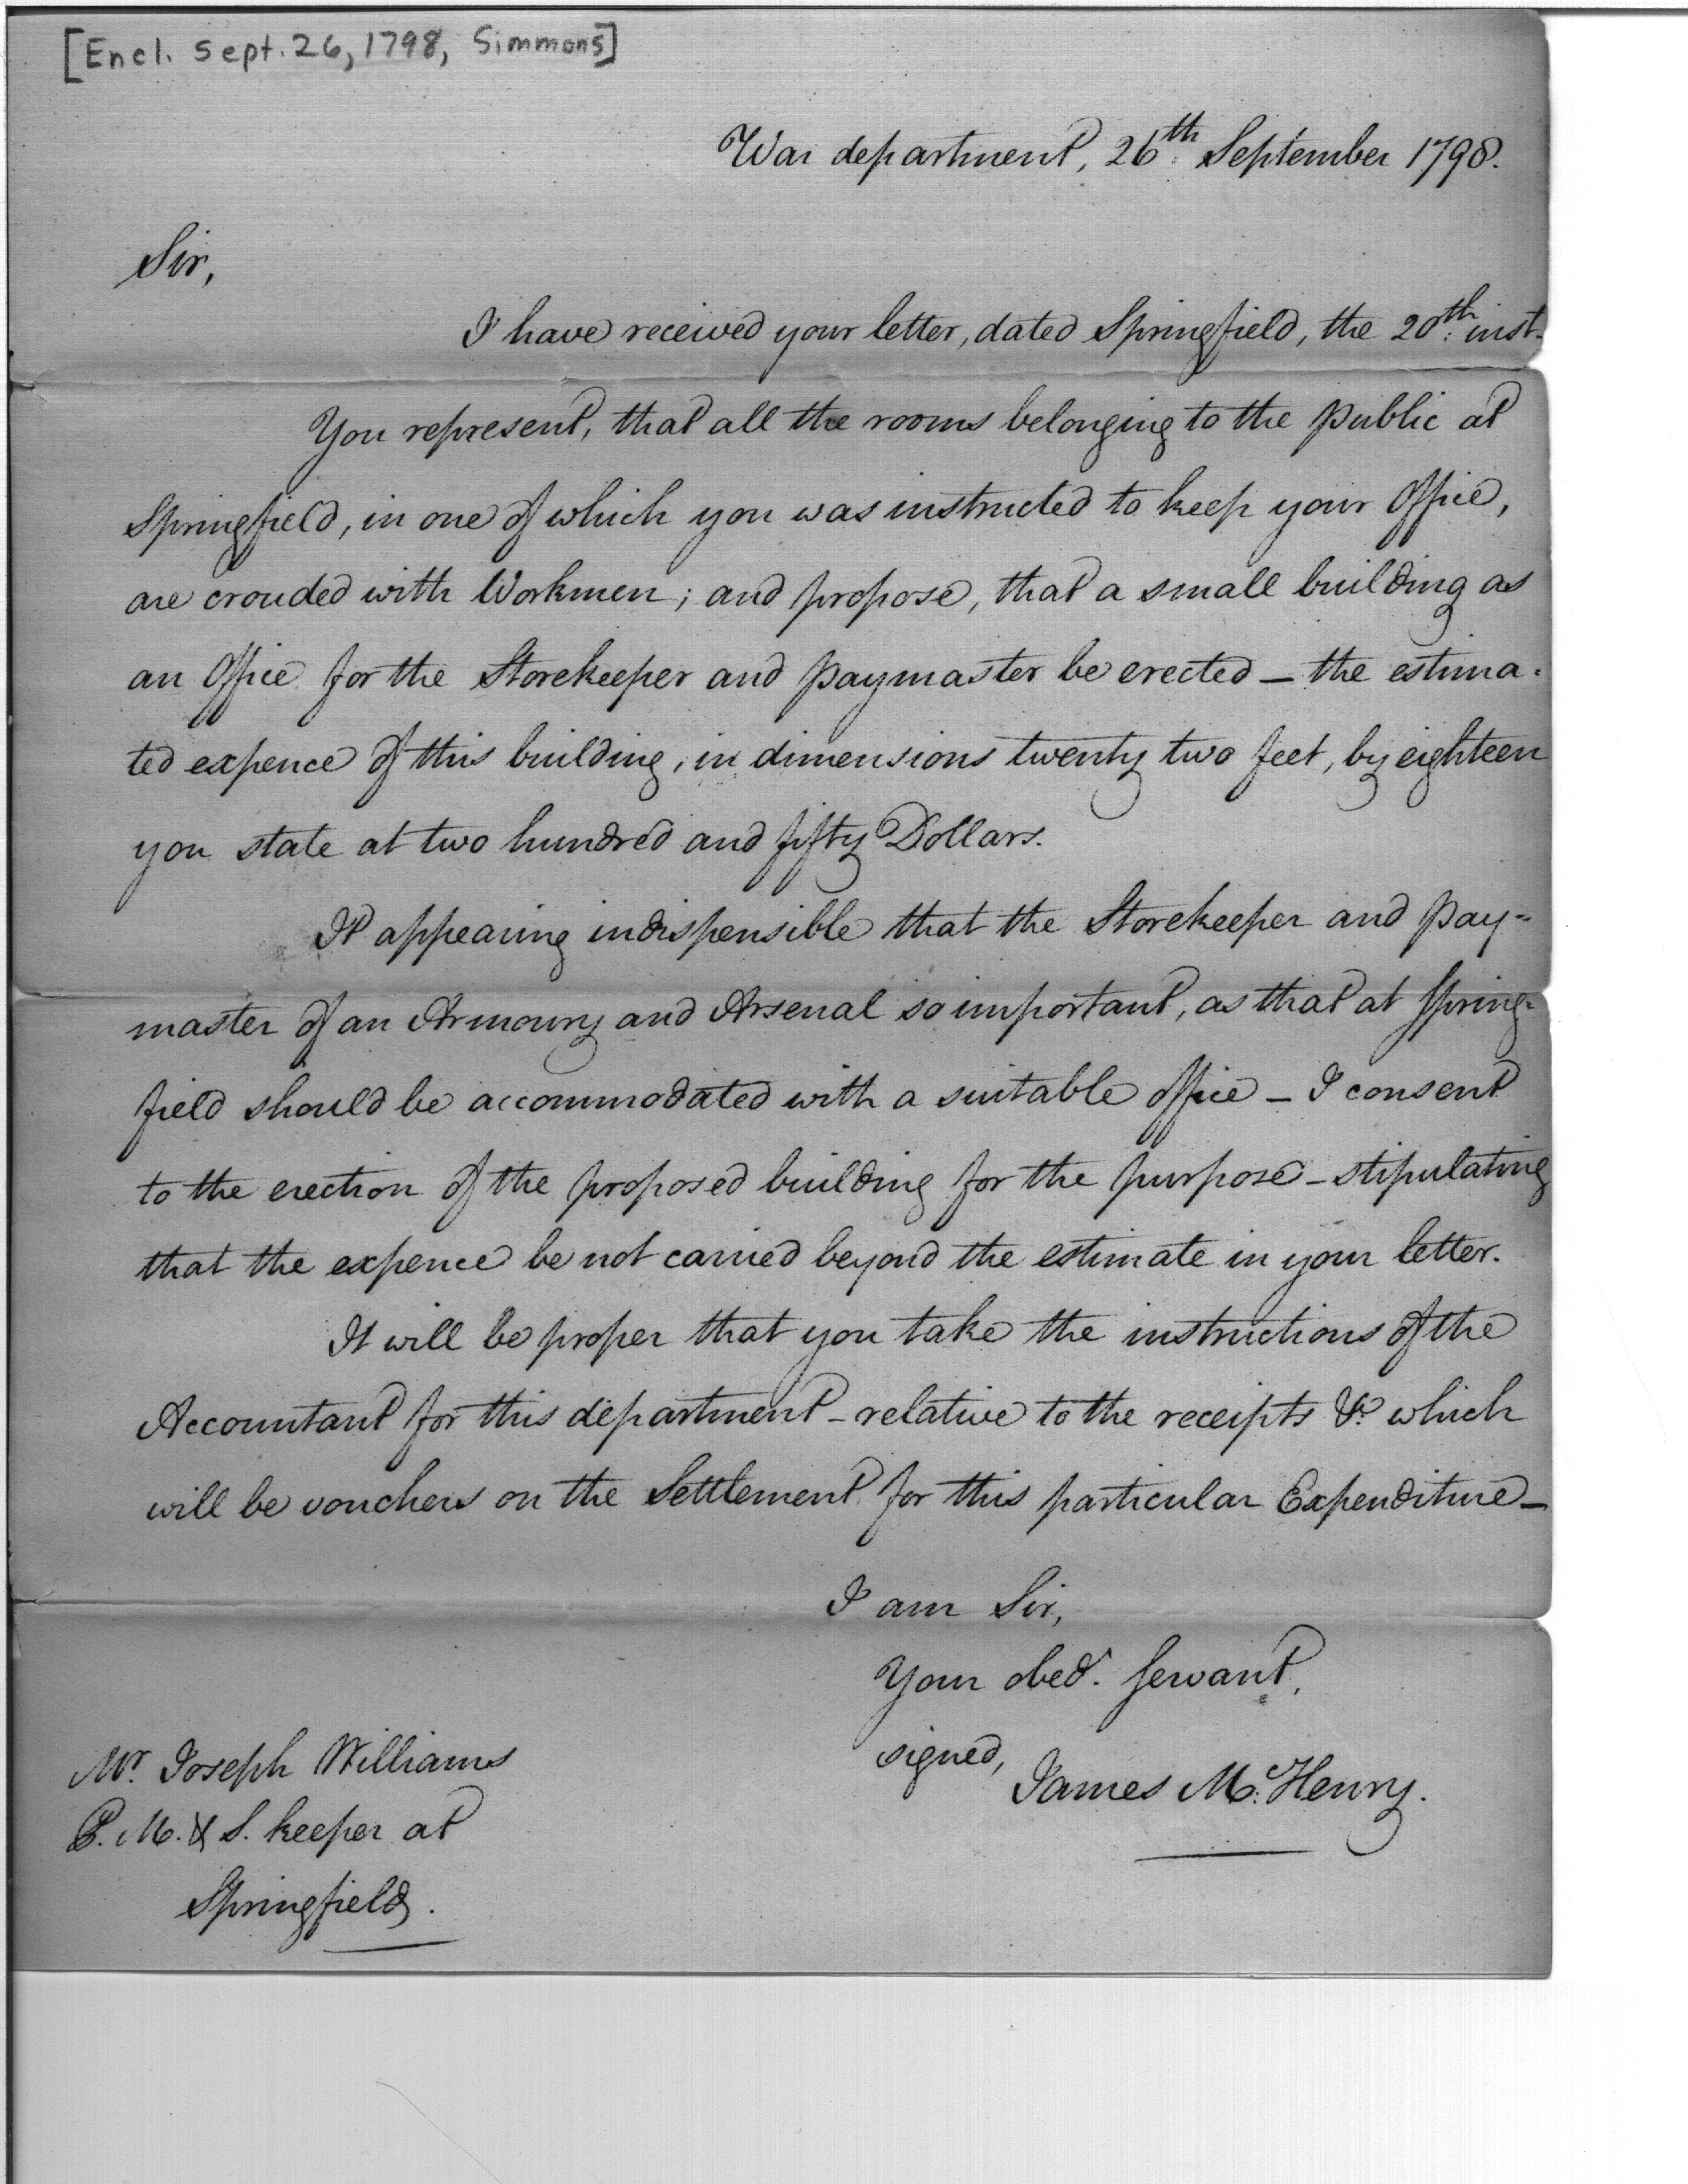 [Encl. Sept. 26, 1798, Simmons]
War department, 26th September 1798.
Sir,
I have received your letter, dated Springfield, the 20th inst.
You represent, that all the rooms belonging to the Public at
Springfield, in one of which you was instructed to keep your Office,
are crouded with Workmen; and propose, that a small building as
an Office for the Storekeeper and Paymaster be erected – the estima-
ted expence of this building, in dimensions twenty two feet, by eighteen
you state at two hundred and fifty Dollars.
It appearing indispensible that the Storekeeper and Pay-
master of an Armoury and Arsenal so important, as that at Spring-
field should be accommodated with a suitable office – I consent
to the erection of the proposed building for the purpose – stipulating
that the expence be not carried beyond the estimate in your letter.
It will be proper that you take the instructions of the
Accountant for this department – relative to the receipts &c. which
will be vouchers on the Settlement for this particular Expenditure –
I am Sir,
Your obed. Servant,
signed,
James McHenry.
Mr. Joseph Williams
P. M. & S. keeper at
Springfield.